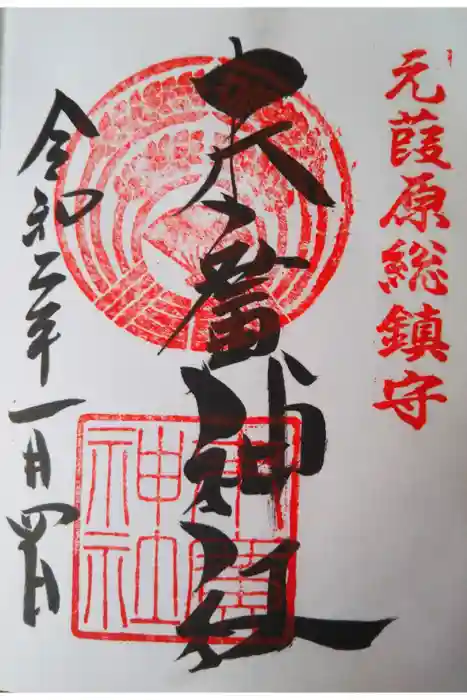 元葭原総鎮守
末廣神社
令和二年一月四日
末廣
神社